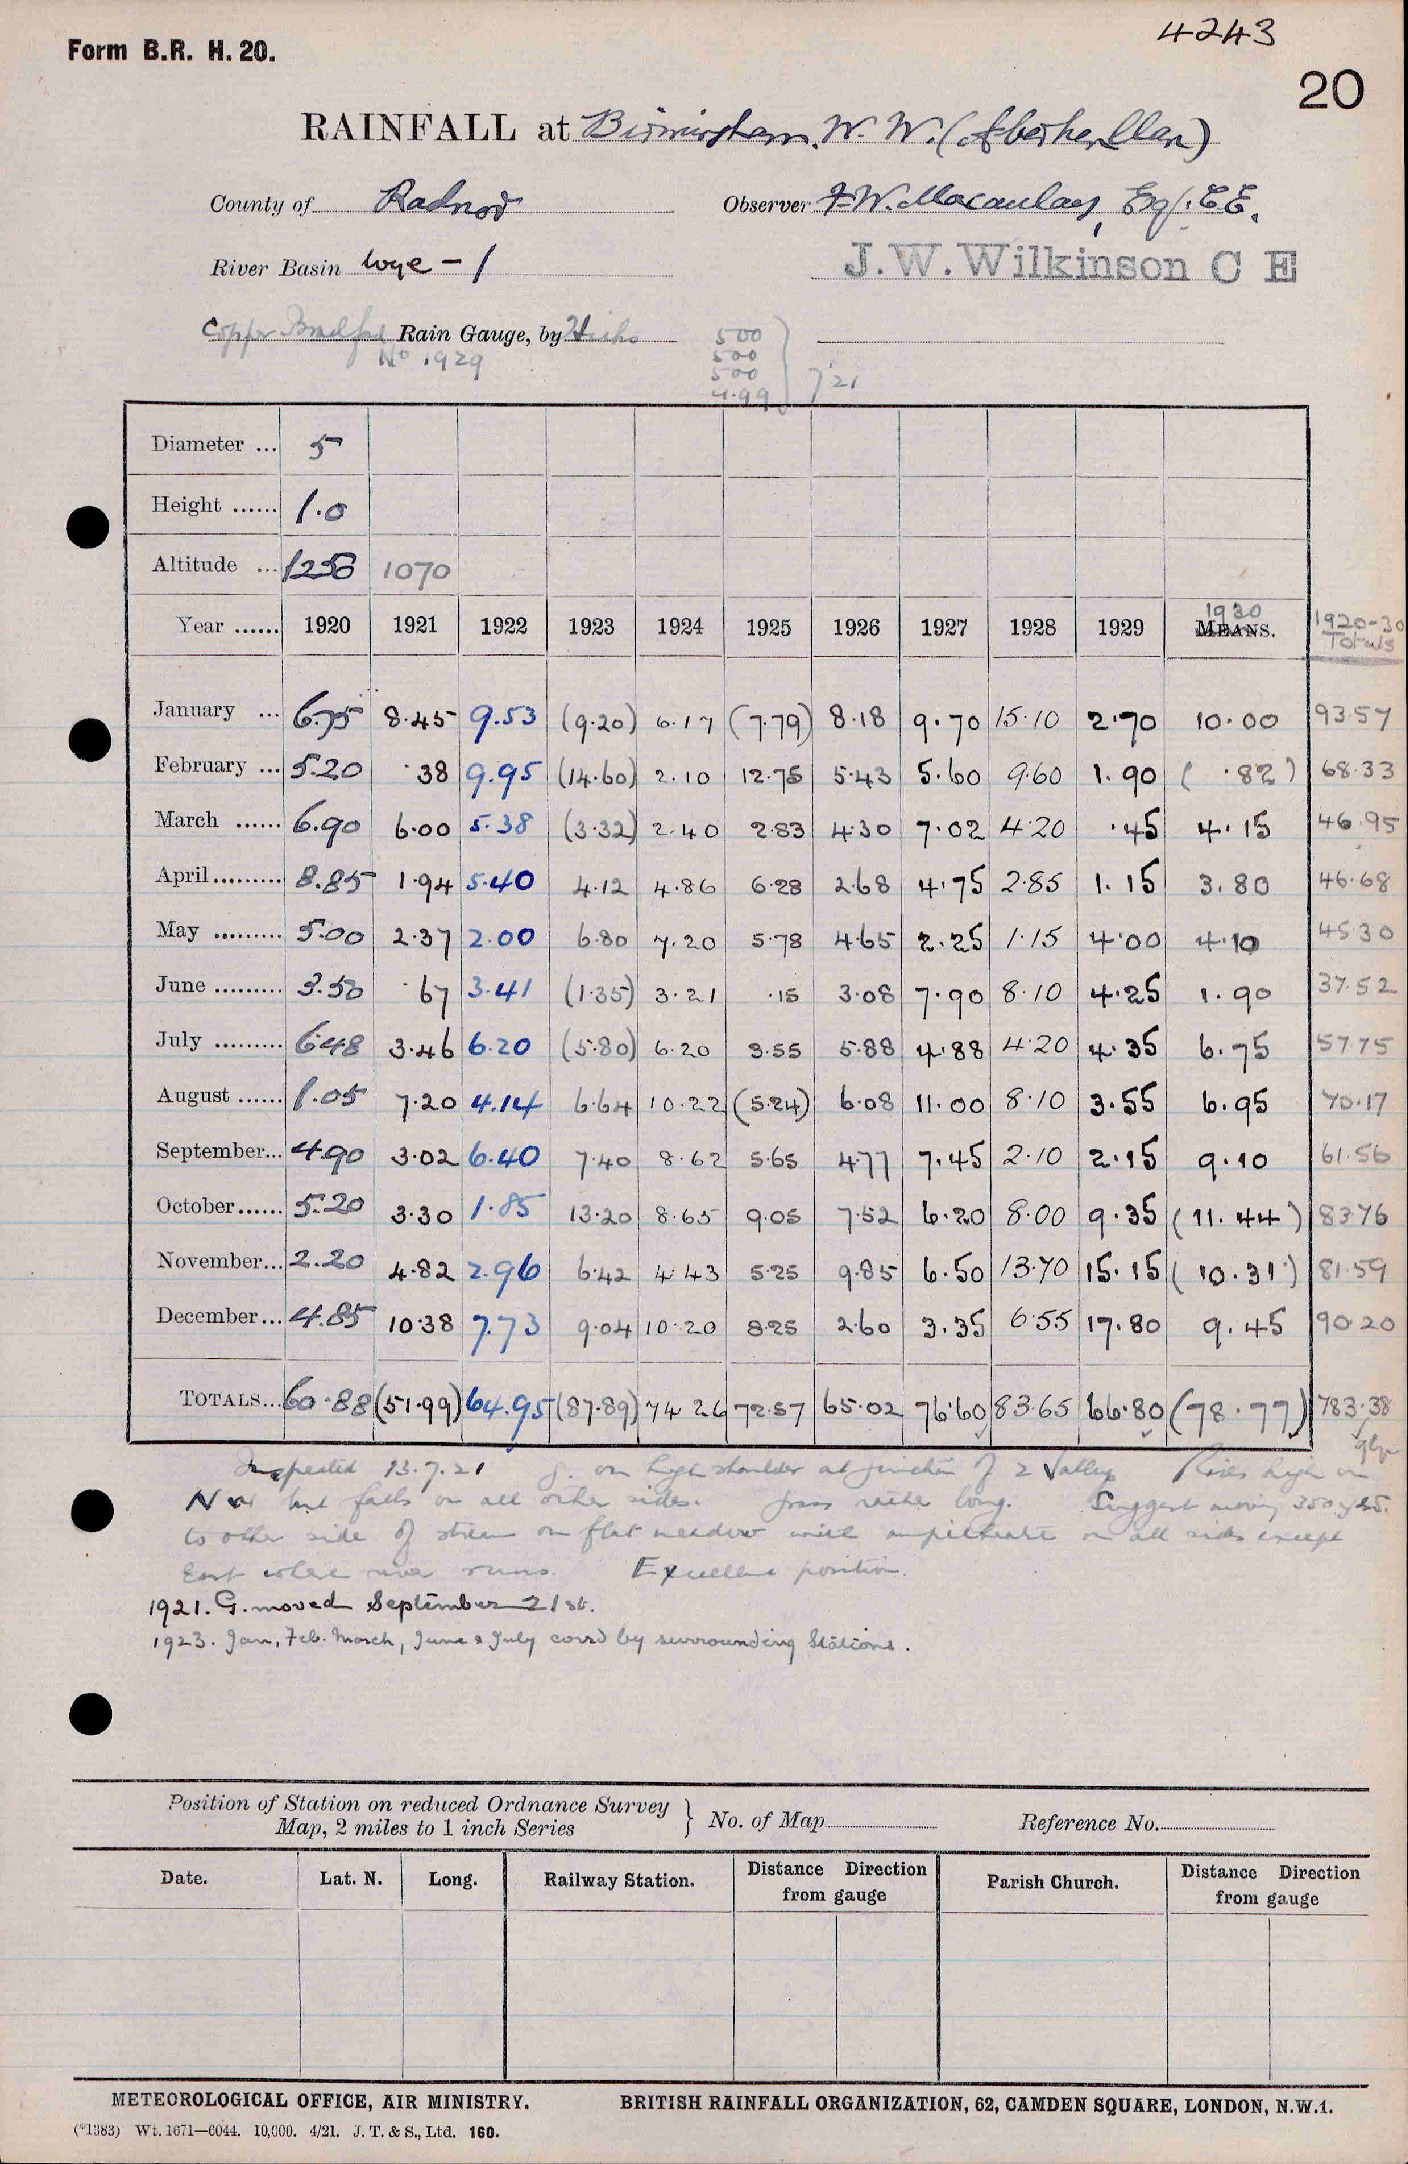 4243
Form B.R. H. 20.
20
RAINFALL at Birmingham. W. W. (Aberhenllan)
County of Radnor Observer F. W. Macaulay, Esq. C.E.
River Basin Wye - 1 J. W. Wilkinson C E
Copper Bradford Rain Gauge, by Hicks
No 1929
500
500
500
4.99
7 21
Diameter ... 5
Height ...... 1.0
Altitude ... 1250 1070
Year ...... 1920 1921 1922 1923 1924 1925 1926 1927 1928 1929 1930 MEANS. 1920-30 Totals
January ... 6.75 8.45 9.53 (9.20) 6.17 (7.79) 8.18 9.70 15.10 2.70 10.00 93.57
February ... 5.20 .38 9.95 (14.60) 2.10 12.75 5.43 5.60 9.60 1.90 ( .82) 68.33
March ...... 6.90 6.00 5.38 (3.32) 2.40 2.83 4.30 7.02 4.20 .45 4.15 46.95
April......... 8.85 1.94 5.40 4.12 4.86 6.28 2.68 4.75 2.85 1.15 3.80 46.68
May ......... 5.00 2.37 2.00 6.80 7.20 5.78 4.65 2.25 1.15 4.00 4.10 45.30
June ......... 3.50 .67 3.41 (1.35) 3.21 .15 3.08 7.90 8.10 4.25 1.90 37.52
July ......... 6.48 3.46 6.20 (5.80) 6.20 3.55 5.88 4.88 4.20 4.35 6.75 57.75
August ...... 1.05 7.20 4.14 6.64 10.22 (5.24) 6.08 11.00 8.10 3.55 6.95 70.17
September... 4.90 3.02 6.40 7.40 8.62 5.65 4.77 7.45 2.10 2.15 9.10 61.56
October...... 5.20 3.30 1.85 13.20 8.65 9.05 7.52 6.20 8.00 9.35 (11.44) 83.76
November... 2.20 4.82 2.96 6.42 4.43 5.25 9.85 6.50 13.70 15.15 (10.31) 81.59
December... 4.85 10.38 7.73 9.04 10.20 8.25 2.60 3.35 6.55 17.80 9.45 90.20
TOTALS... 60.88 (51.99) 64.95 (87.89) 74.26 72.57 65.02 76.60 83.65 66.80 (78.77) 783.38
Inspected 13.7.21 g. on high shoulder at junction of 2 Valleys Rises high on
N & W but falls on all other sides. Grass rather long. Suggest moving 350 yds.
to other side of stream on flat meadow with ampitheatre on all sides except
East where river runs. Excellent position.
1921. G. moved September 21st.
1923. Jan, Feb. March, June & July corrd by surrounding Stations.
Position of Station on reduced Ordnance Survey
Map, 2 miles to 1 inch Series } No. of Map Reference No.
Date. Lat. N. Long. Railway Station. Distance Direction from gauge Parish Church. Distance Direction from gauge
METEOROLOGICAL OFFICE, AIR MINISTRY. BRITISH RAINFALL ORGANIZATION, 62, CAMDEN SQUARE, LONDON, N.W.1.
(*1383) Wt. 1671—6044. 10,000. 4/21. J. T. & S., Ltd. 160.